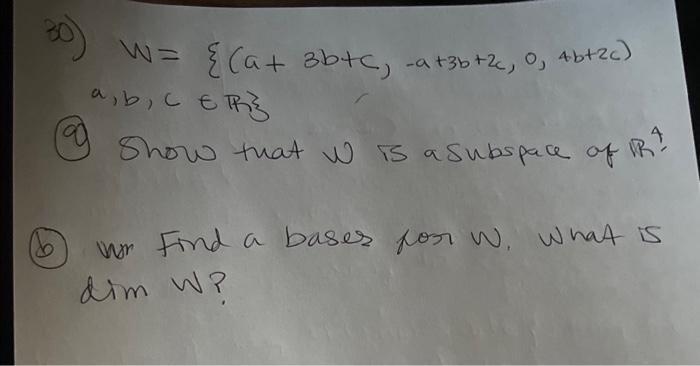 30) W = {(a + 3b+c, -a+3b+2c, 0, 4b+2c)
a, b, c ∈ ℝ}
(a) Show that W is a subspace of ℝ⁴.
(b) Find a bases for W. What is
dim W?